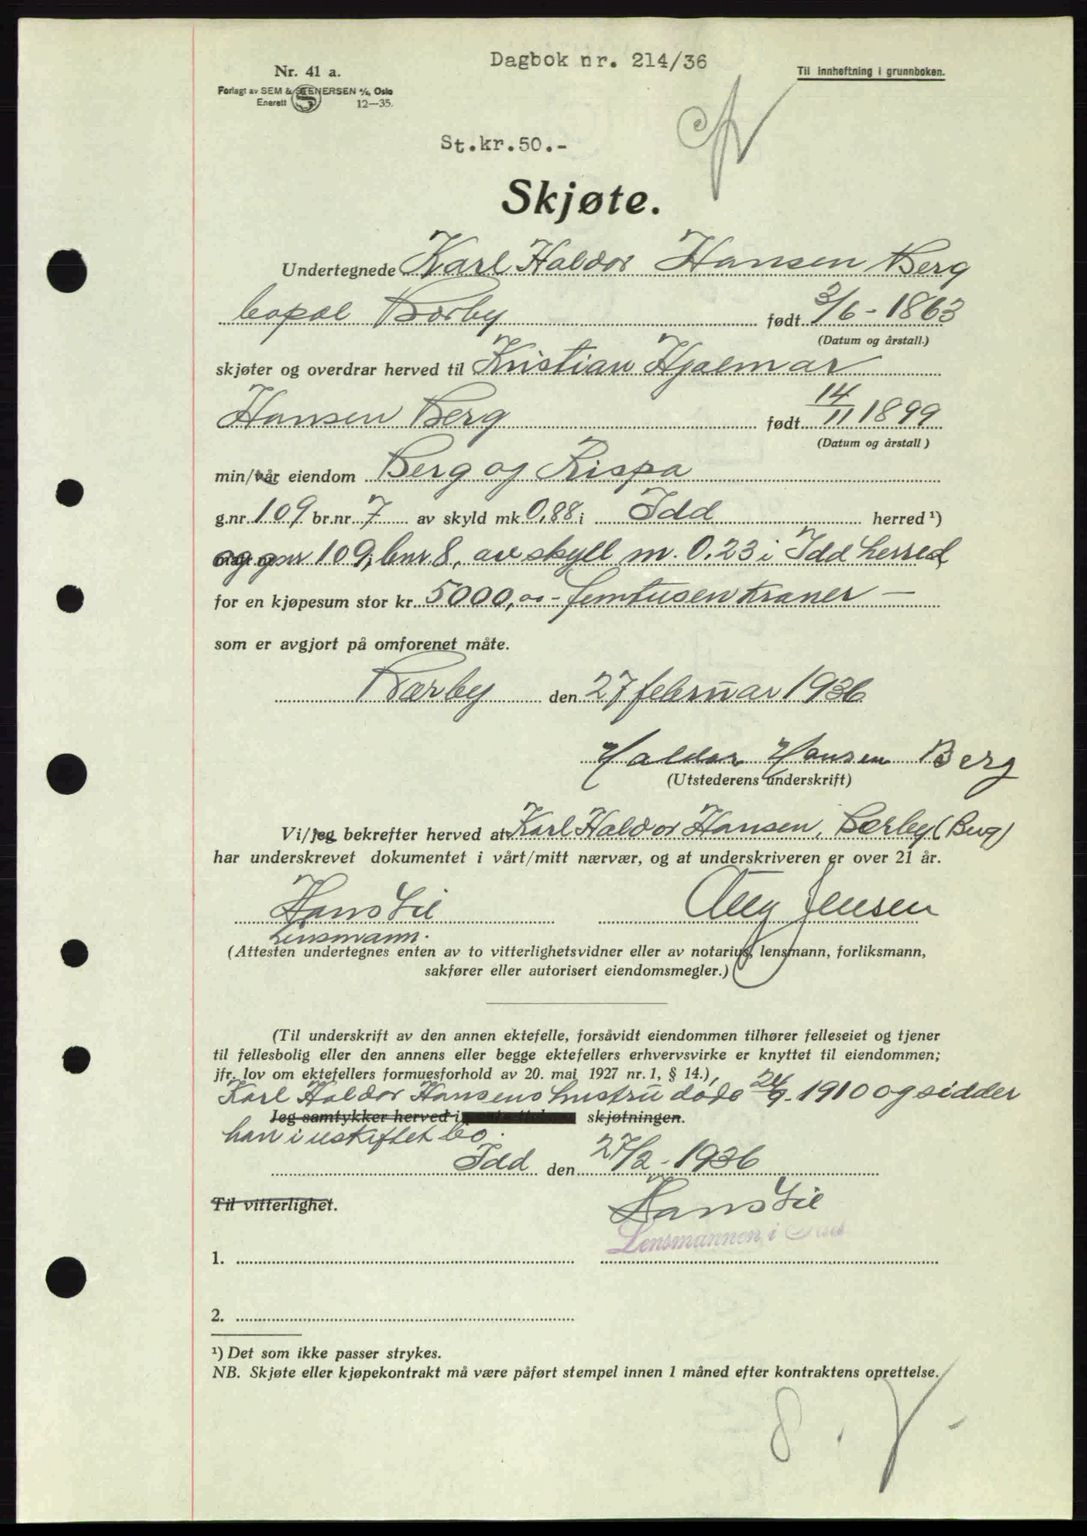 Dagbok nr. 214/36
Nr. 41 a.
Til innheftning i grunnboken.
Forlagt av SEM & STENERSEN A/S, Oslo
Enerett 12—35.
St.kr.50.-
Skjøte.
Undertegnede Karl Haldor Hansen Berg
bopæl Bærby født 3/6 - 1863
(Datum og årstall.)
skjøter og overdrar herved til Kristian Hjalmar
Hansen Berg født 14/11 1899
(Datum og årstall)
min/vår eiendom Berg og Rispa
g.nr. 109 br.nr. 7 av skyld mk 0,88 i Idd herred ¹)
og gnr 109, bnr. 8, av skyll m. 0.23 i Idd herred,
for en kjøpesum stor kr. 5000,00 - femtusen kroner —
som er avgjort på omforenet måte.
Bærby den 27 februar 1936
Haldor Hansen Berg
(Utstederens underskrift)
Vi/jeg bekrefter herved at Karl Haldor Hansen, Bærby (Berg)
har underskrevet dokumentet i vårt/mitt nærvær, og at underskriveren er over 21 år.
Hans Lie Aug Jensen
Lensmann.
(Attesten undertegnes enten av to vitterlighetsvidner eller av notarius, lensmann, forliksmann,
sakfører eller autorisert eiendomsmegler.)
(Til underskrift av den annen ektefelle, forsåvidt eiendommen tilhører felleseiet og tjener
til fellesbolig eller den annens eller begge ektefellers erhvervsvirke er knyttet til eiendommen;
jfr. lov om ektefellers formuesforhold av 20. mai 1927 nr. 1, § 14.)
Karl Haldor Hansens hustru døde 24/9 - 1910 og sidder
Jeg samtykker herved i skjøtningen.
han i uskiftet bo.
Idd den 27/2 - 1936
Til vitterlighet.
Hans Lie
Lensmannen i Idd
1.
2.
¹) Det som ikke passer strykes.
NB. Skjøte eller kjøpekontrakt må være påført stempel innen 1 måned efter kontraktens oprettelse.